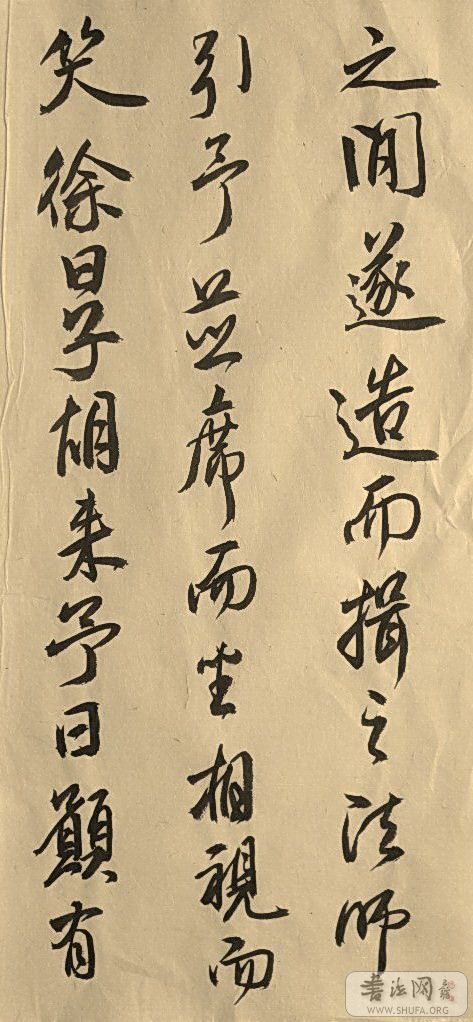 之間遂造而揖之法師
引予並席而坐相視而
笑徐曰子胡来予曰願有
書法网
WWW.SHUFA.ORG